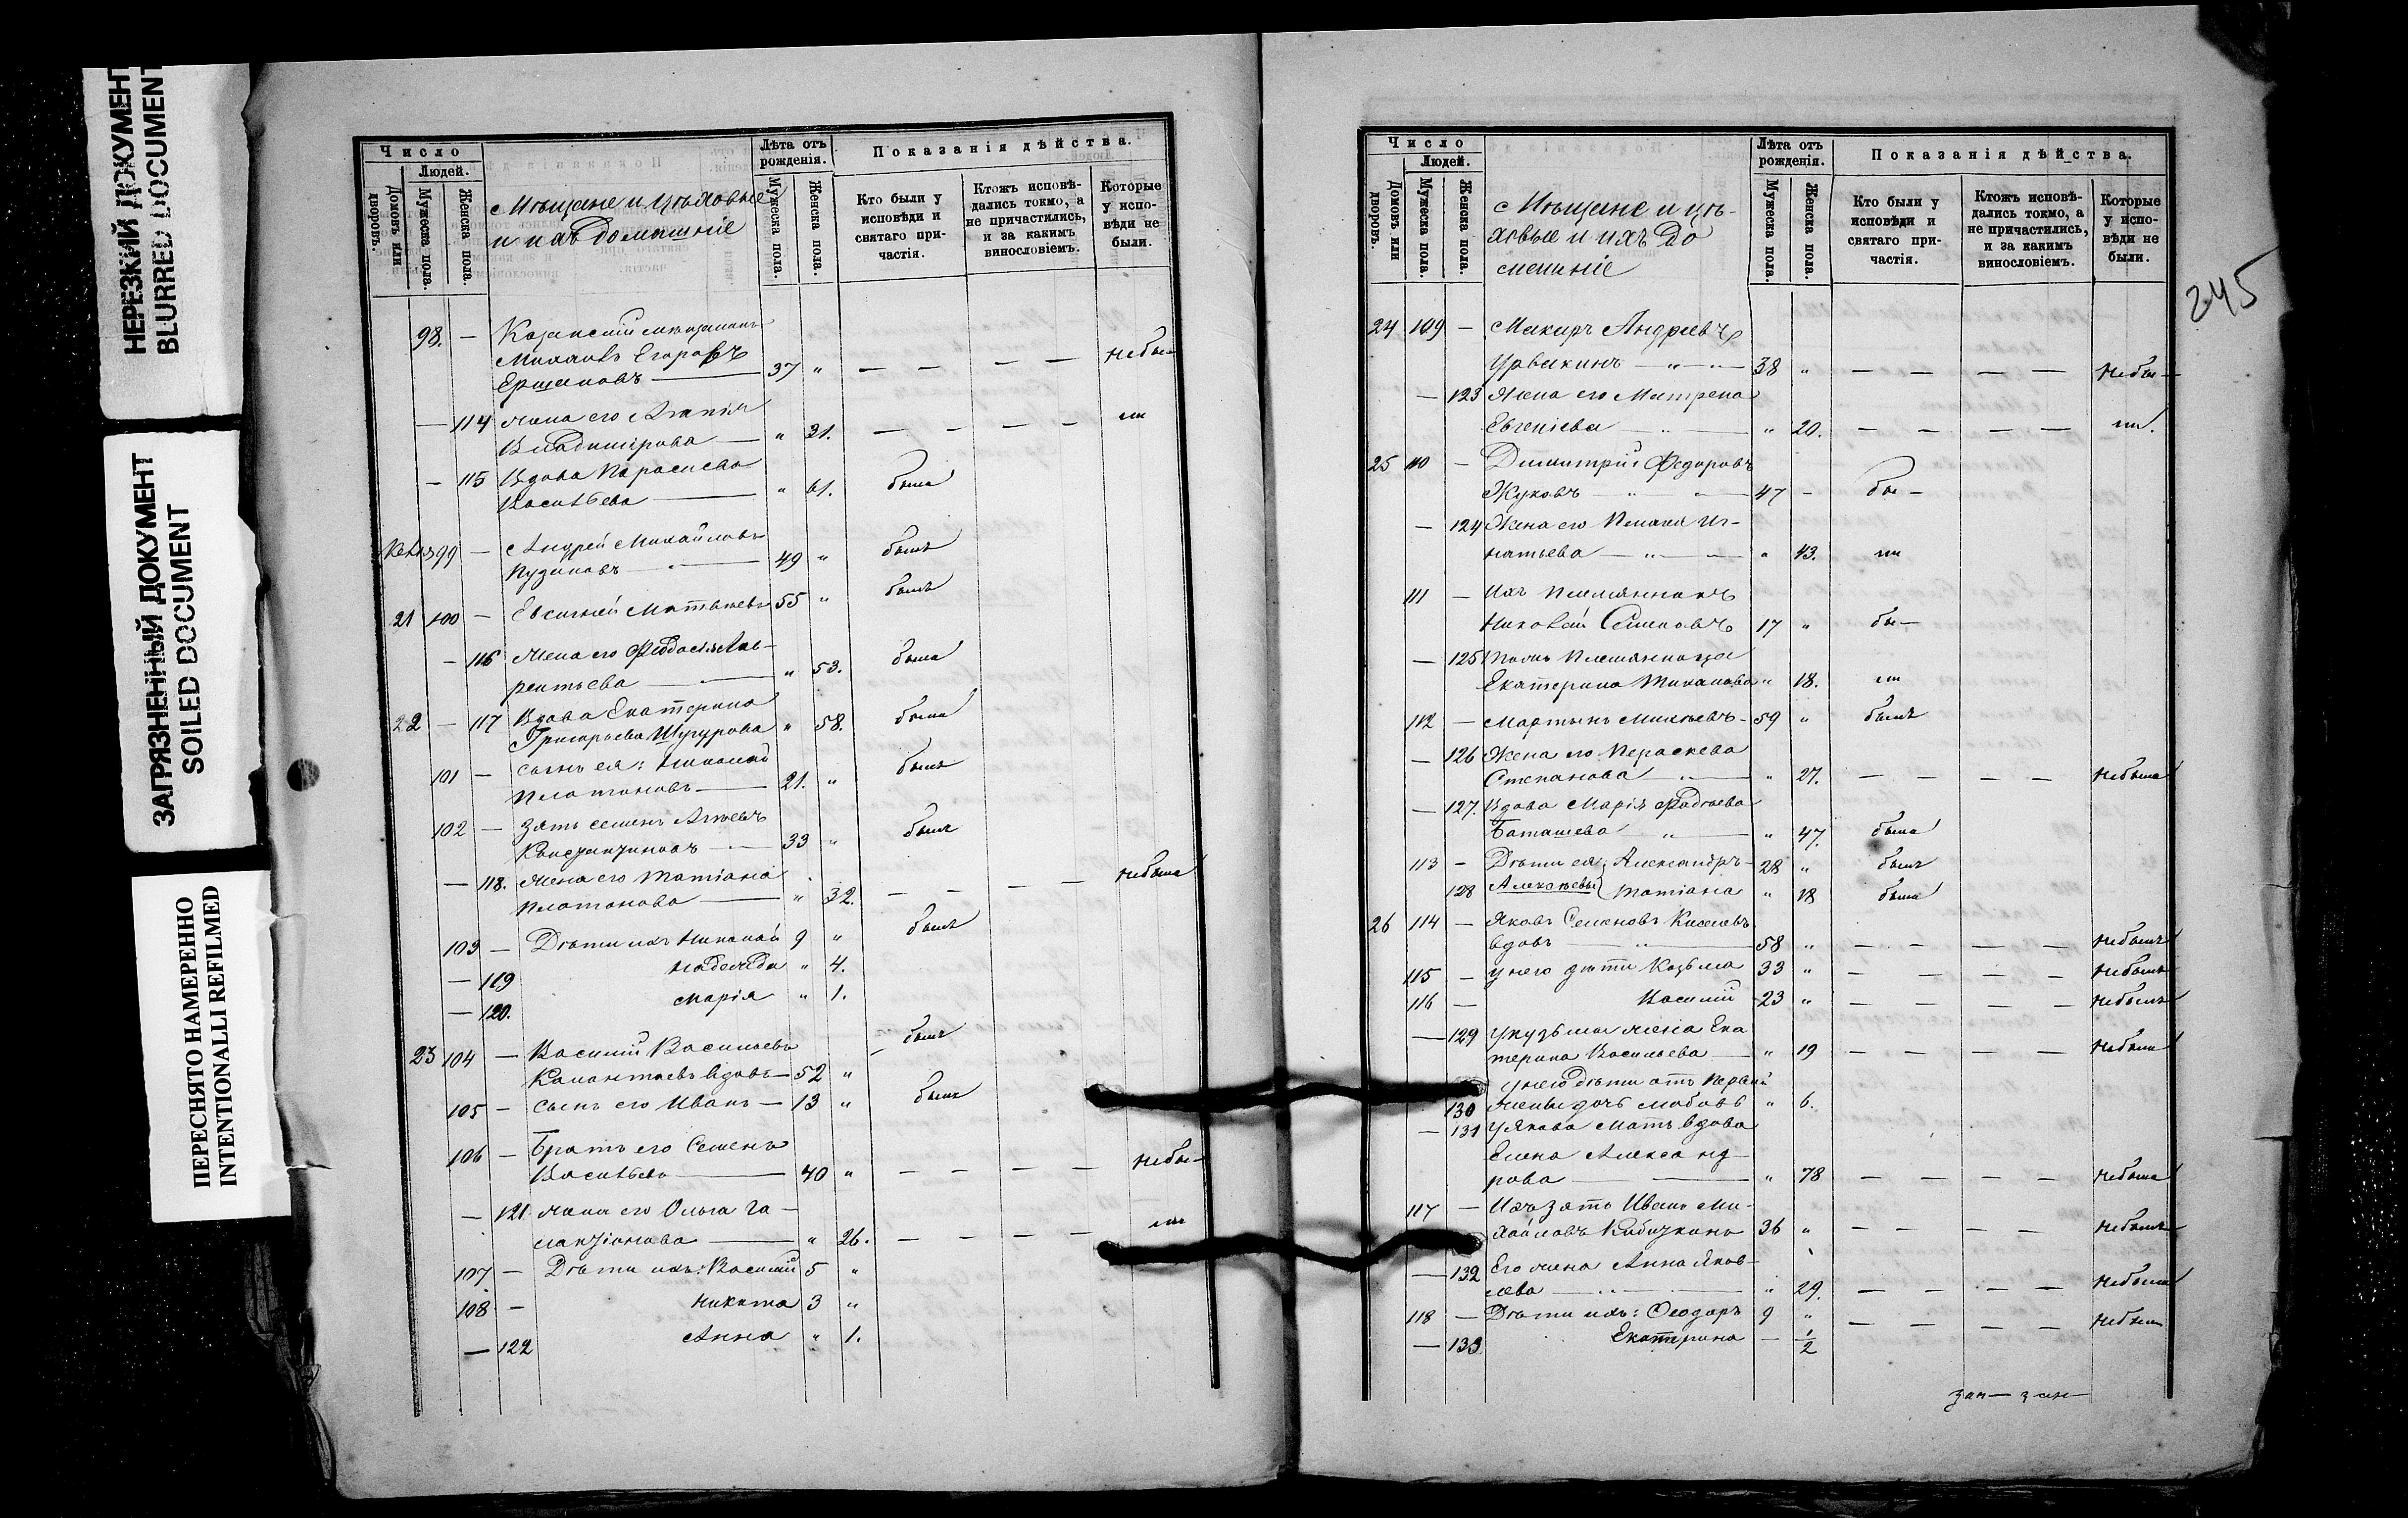 НЕРЕЗКИЙ ДОКУМЕНТ
BLURRED DOCUMENT
ЗАГРЯЗНЕННЫЙ ДОКУМЕНТ
SOILED DOCUMENT
ПЕРЕСНЯТО НАМЕРЕННО
INTENTIONALLI REFILMED
Число
Людей.
Домовъ или дворовъ.
Мужеска пола.
Женска пола.
Мѣщане и цѣховые
и ихъ домашніе
Лѣта отъ рожденія.
Мужеска пола.
Женска пола.
Показанія дѣйства.
Кто были у исповѣди и святаго причастія.
Ктожъ исповѣдались токмо, а не причастились, и за какимъ винословіемъ.
Которые у исповѣди не были.
98. — Казанскій мѣщанинъ
Михаилъ Егоровъ
37 " — — — — небы
— 114 жена его
Владимірова — " 31. — — — —
— 115 Вдова Параскева
Васильева — " 61. была
99 — Андрей Михайловъ
49 " былъ
21 100 — Матвѣевъ 55 " былъ
— 116 жена его Феодосія Лав-
рентьева — " 53. была
22 — 117 Вдова Екатерина
Григорьева Шугурова " 58. была
101 — сынъ ея: Николай
Платоновъ — 21. " былъ
102 — Зять Семенъ
33 " былъ
— 118. жена его Татіана
Платонова — " 32. — — — — небыла
103 — Дѣти ихъ Николай 9 " былъ
— 119 Надежда " 4.
— 120. Марія " 1.
23 104 — Василій Васильевъ
вдовъ — 52 " былъ
105 — сынъ его Иванъ — 13 " былъ
106 — Братъ его Семенъ
Васильевъ — 40 " — — — — небы—
— 121 жена его Ольга Га-
лактіонова — " 26. — — — —
107 — Дѣти ихъ: Василій 5 "
108 — Никита 3 "
— 122 Анна " 1.
Число
Людей.
Домовъ или дворовъ.
Мужеска пола.
Женска пола.
Мѣщане и цѣ-
ховые и ихъ до
машніе
Лѣта отъ рожденія.
Мужеска пола.
Женска пола.
Показанія дѣйства.
Кто были у исповѣди и святаго причастія.
Ктожъ исповѣдались токмо, а не причастились, и за какимъ винословіемъ.
Которые у исповѣди не были.
245
24 109 — Макаръ Андреевъ
Урвакинъ — " — 38 " — — — — небы—
— 123 Жена его Матрена
Евгеніева — " 20. — — — —
25 110 — Димитрій Федоровъ
Жуковъ — " — 47 — бы—
— 124 Жена его Иг-
натьева — " — " 43.
111 — Ихъ племянникъ
Николай Семеновъ 17 " бы—
— 125 племянница
Екатерина " 18.
112 — Мартынъ 59 " былъ
— 126 Жена его Параскева
Степанова — " 27. — — — — небыла
— 127. Вдова Марія Фадѣева
Баташева " — " 47. была
113 — Дѣти ея: Александръ — 28 " былъ
128 Алексѣевы Татіана " 18 была
26 114 — Яковъ Семеновъ Киселевъ
вдовъ — 58 " — — — — небылъ
115 — у него дѣти Козьма 33 " — — — — небылъ
116 — Василій 23 " — — — — небылъ
— 129 У Кузьмы жена Ека
терина Васильева — " 19 — — — — небыла
У него дѣти отъ первой
130 жены дочь Любовь " 6.
— 131 У Якова мать вдова
Елена Александ
рова — " 78 — — — — небыла
117 — Ихъ зять Иванъ Ми-
хайловъ 36 " — — — — небылъ
— 132 Его жена Анна Яков-
лева — " 29. — — — — небыла
118 — Дѣти ихъ: Ѳеодоръ 9 " — — — — небылъ
— 133 Екатерина — 1/2